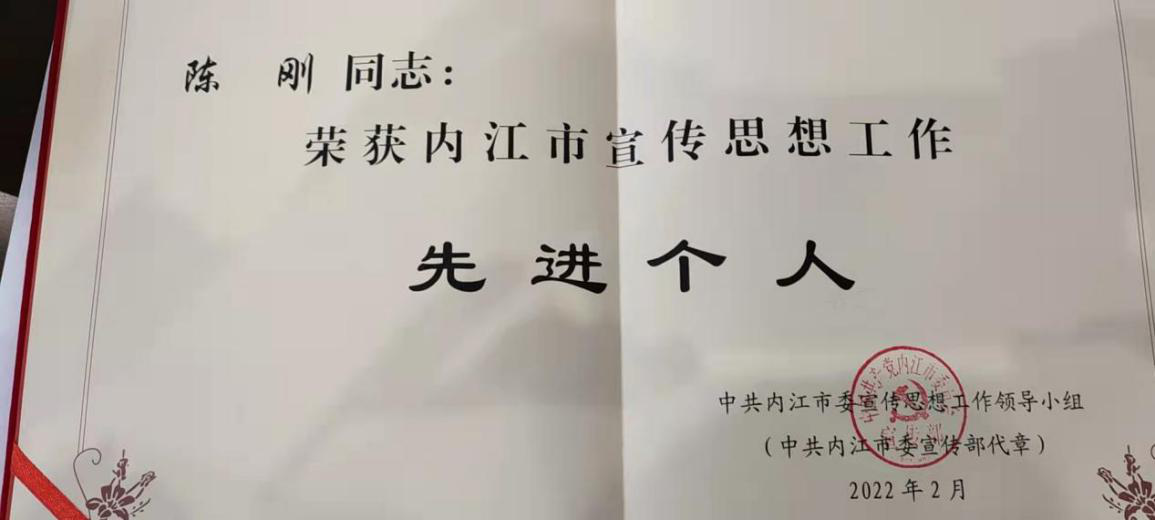 陈 刚 同志：
荣获内江市宣传思想工作
先进个人
中共内江市委宣传思想工作领导小组
（中共内江市委宣传部代章）
2022年2月
中国共产党内江市委员会
宣传部